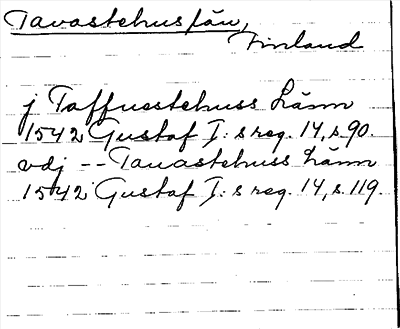 Tavastehus län,
Finland
j Taffuestehuss Länn
1542 Gustaf I: s reg. 14, s. 90.
vdj -- Tauastehuss Länn
1542 Gustaf I: s reg. 14, s. 119.